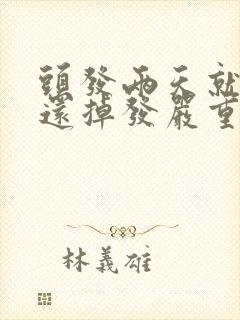 頭發兩天就
還掉發嚴重
林義雄